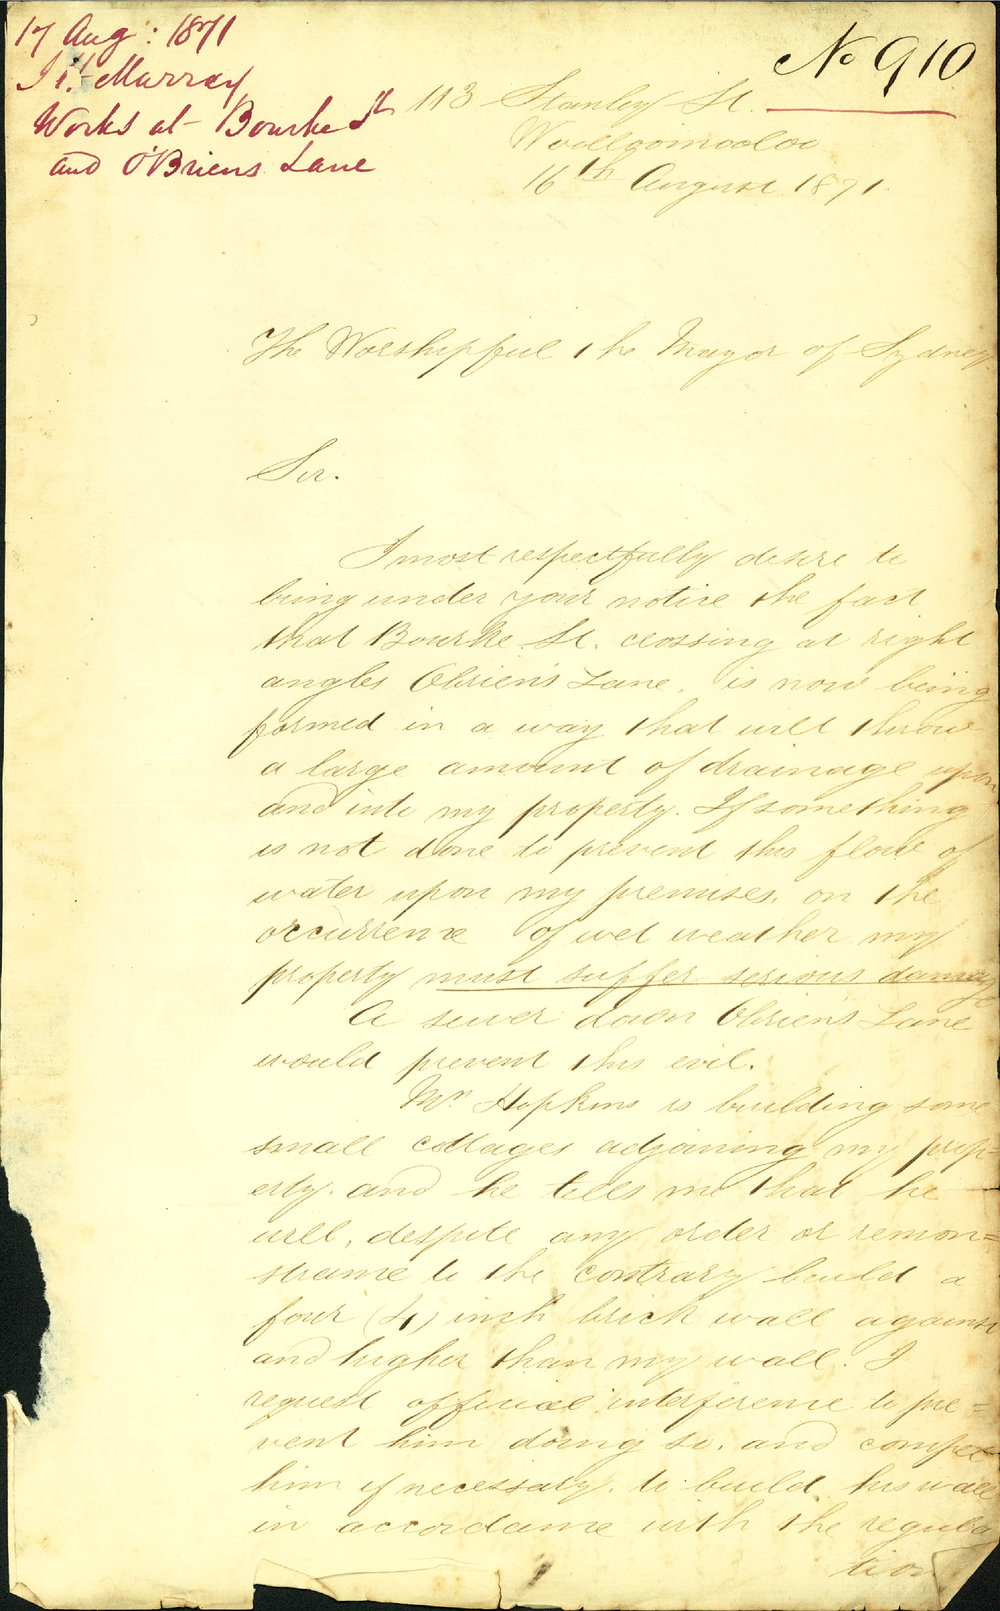 17 Aug: 1871
Jt. Murray
Works at Bourke St
and O'Briens Lane
No 910
113 Stanley St.
Woolloomooloo
16th August 1871.
The Worshipful the Mayor of Sydney.
Sir.
I most respectfully desire to
bring under your notice the fact
that Bourke St. crossing at right
angles Obriens Lane. is now being
formed in a way that will throw
a large amount of drainage upon
and into my property. If something
is not done to prevent this flow of
water upon my premises, on the
occurrence of wet weather my
property must suffer serious damage
A sewer down Obriens Lane
would prevent this evil.
Mr. Hopkins is building some
small cottages adjoining my prop=
erty. and he tells me that he
will, despite any order or remon=
strance to the contrary build a
four (4) inch brick wall against
and higher than my wall. I
request official interference to pre=
vent him doing so. and compel
him if necessary. to build his wall
in accordance with the regula
tion